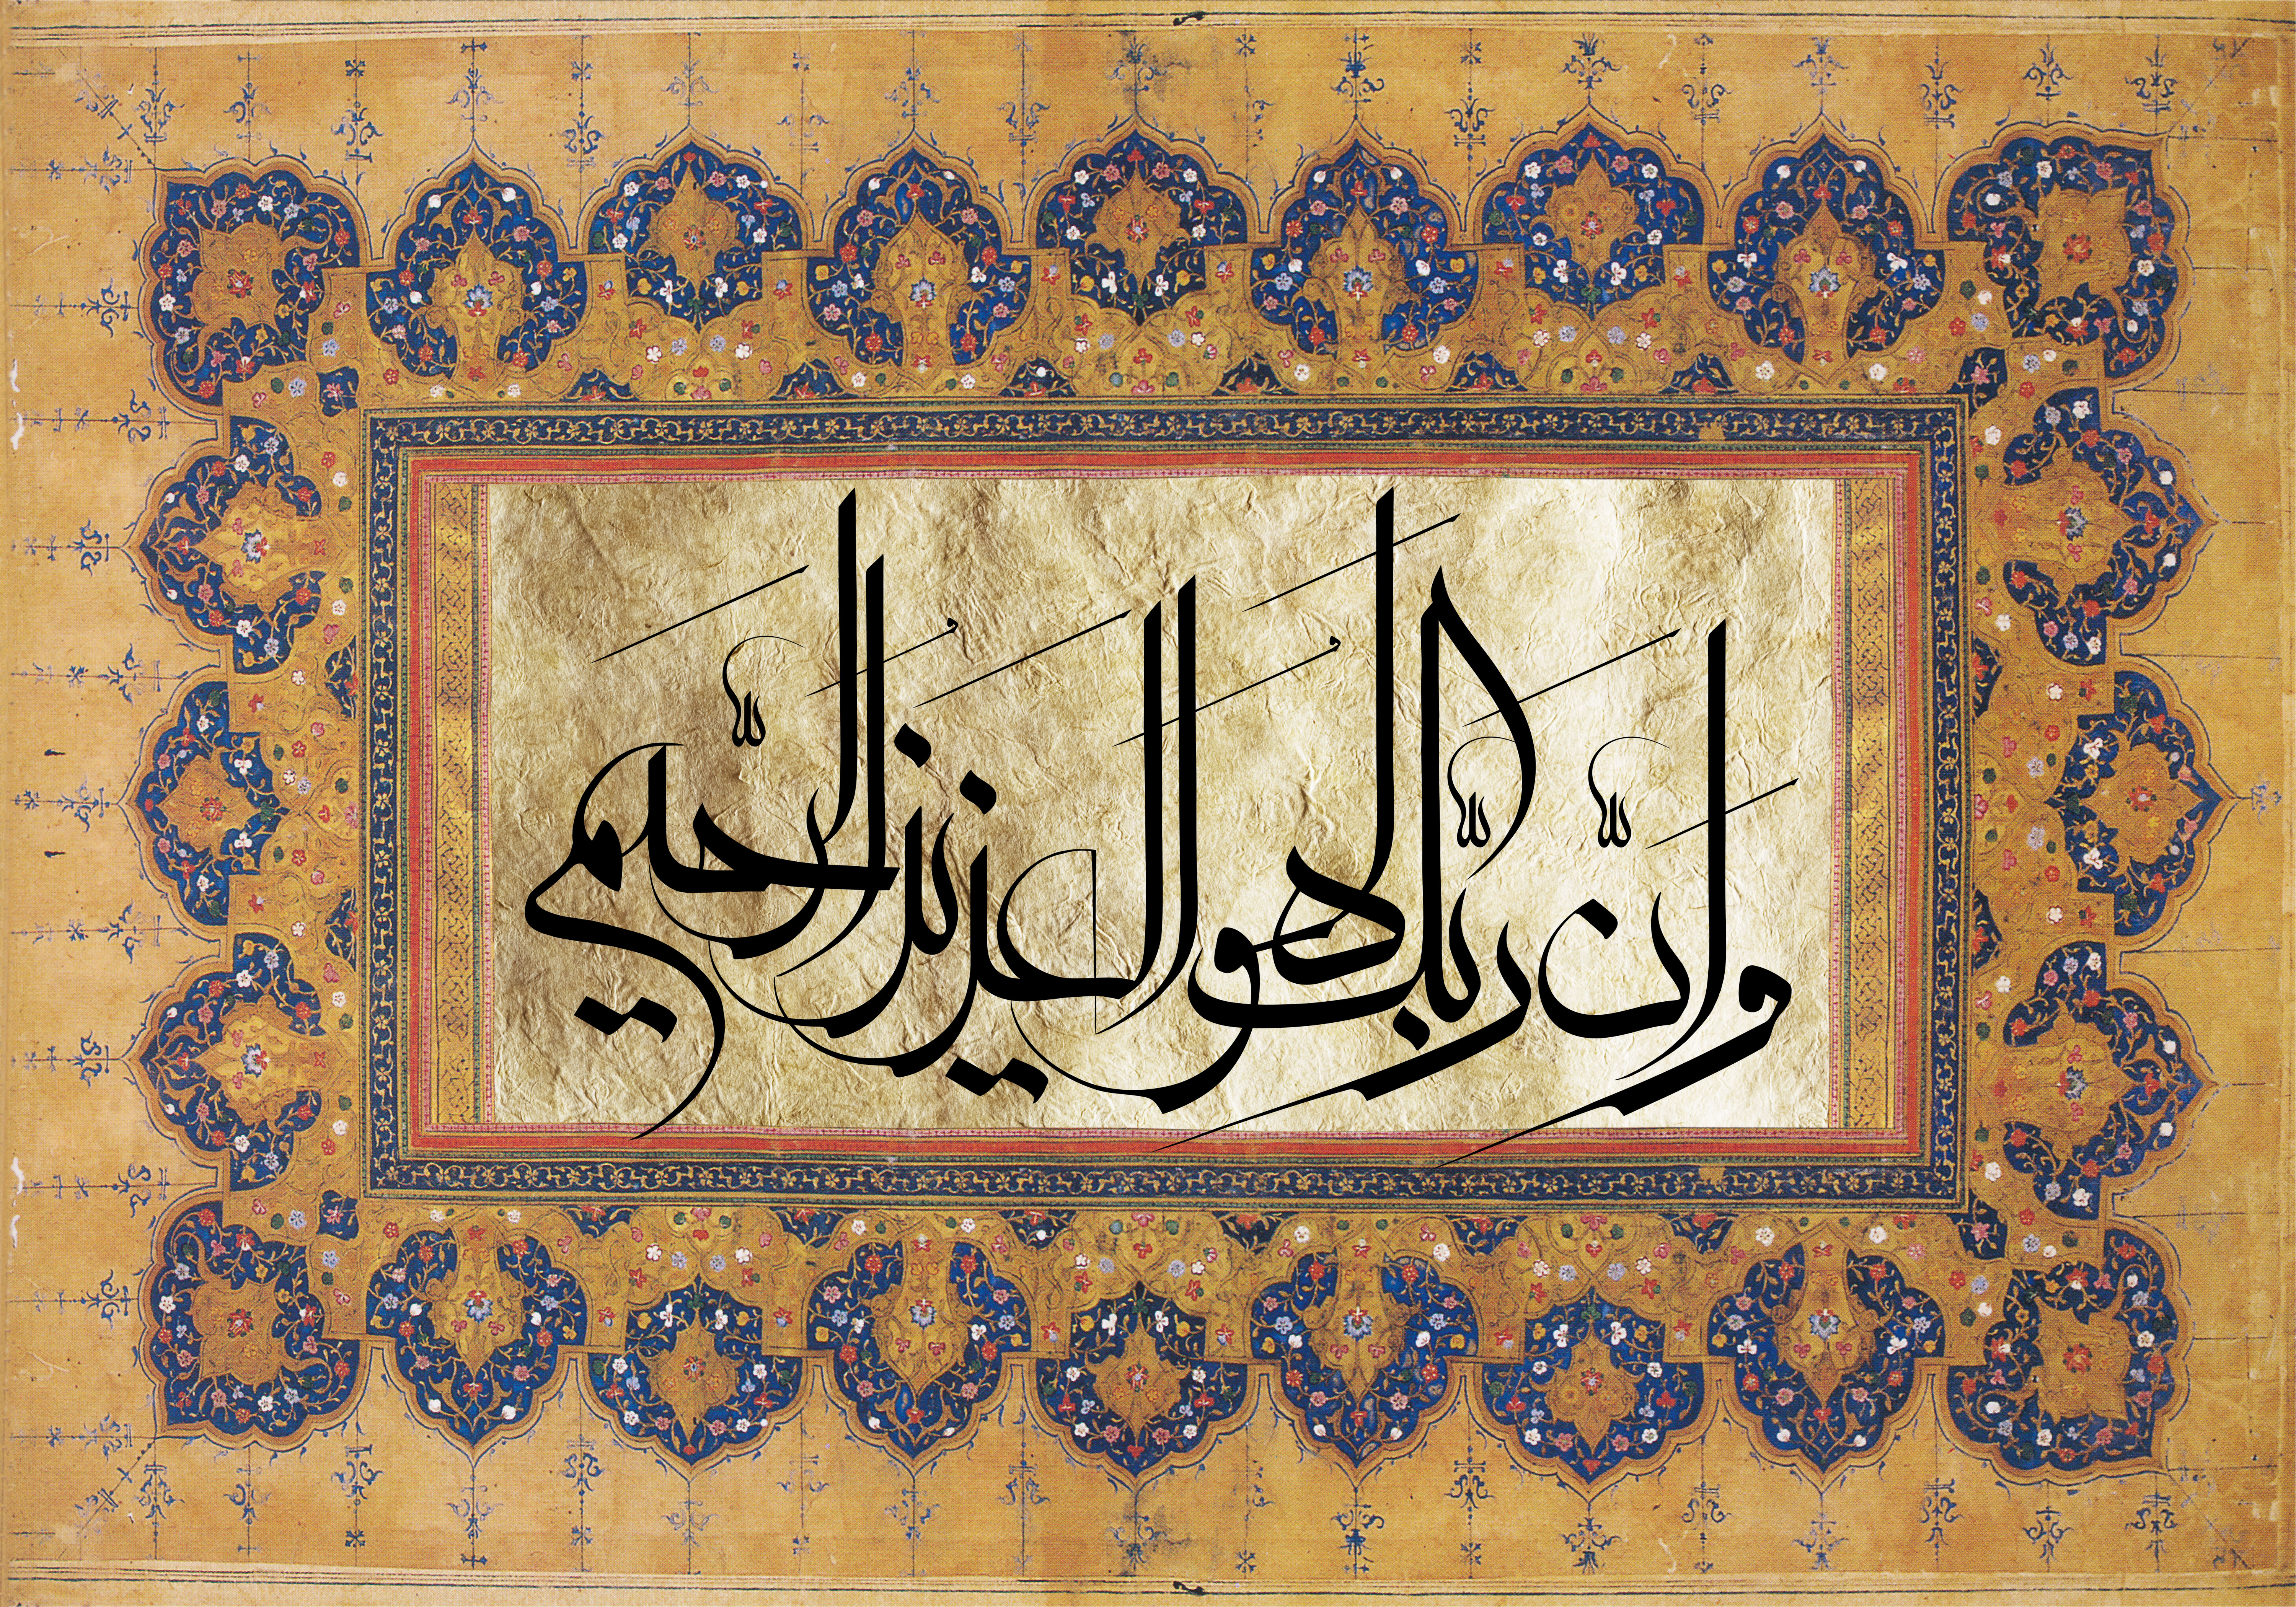 وَإِنَّ رَبَّكَ لَهُوَ الْعَزِيزُ الرَّحِيمُ